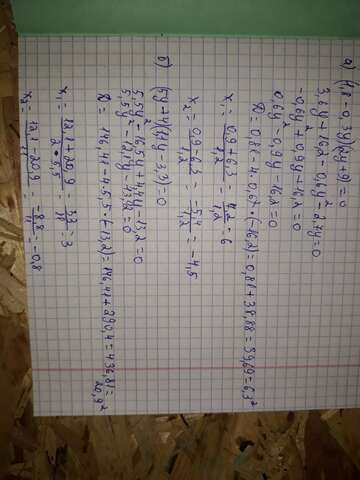 а) (1,8 - 0,3y)(2y + 9) = 0
3,6y + 16,2 - 0,6y² - 2,7y = 0
-0,6y² + 0,9y + 16,2 = 0
0,6y² - 0,9y - 16,2 = 0
D = 0,81 - 4 · 0,6 · (-16,2) = 0,81 + 38,88 = 39,69 = 6,3²
x₁ = 0,9 + 6,3 / 1,2 = 7,2 / 1,2 = 6
x₂ = 0,9 - 6,3 / 1,2 = -5,4 / 1,2 = -4,5
б) (5y + 4)(1,1y - 3,3) = 0
5,5y² - 16,5y + 4,4y - 13,2 = 0
5,5y² - 12,1y - 13,2 = 0
D = 146,41 - 4 · 5,5 · (-13,2) = 146,41 + 290,4 = 436,81 = 20,9²
x₁ = 12,1 + 20,9 / 2 · 5,5 = 33 / 11 = 3
x₂ = 12,1 - 20,9 / 11 = -8,8 / 11 = -0,8